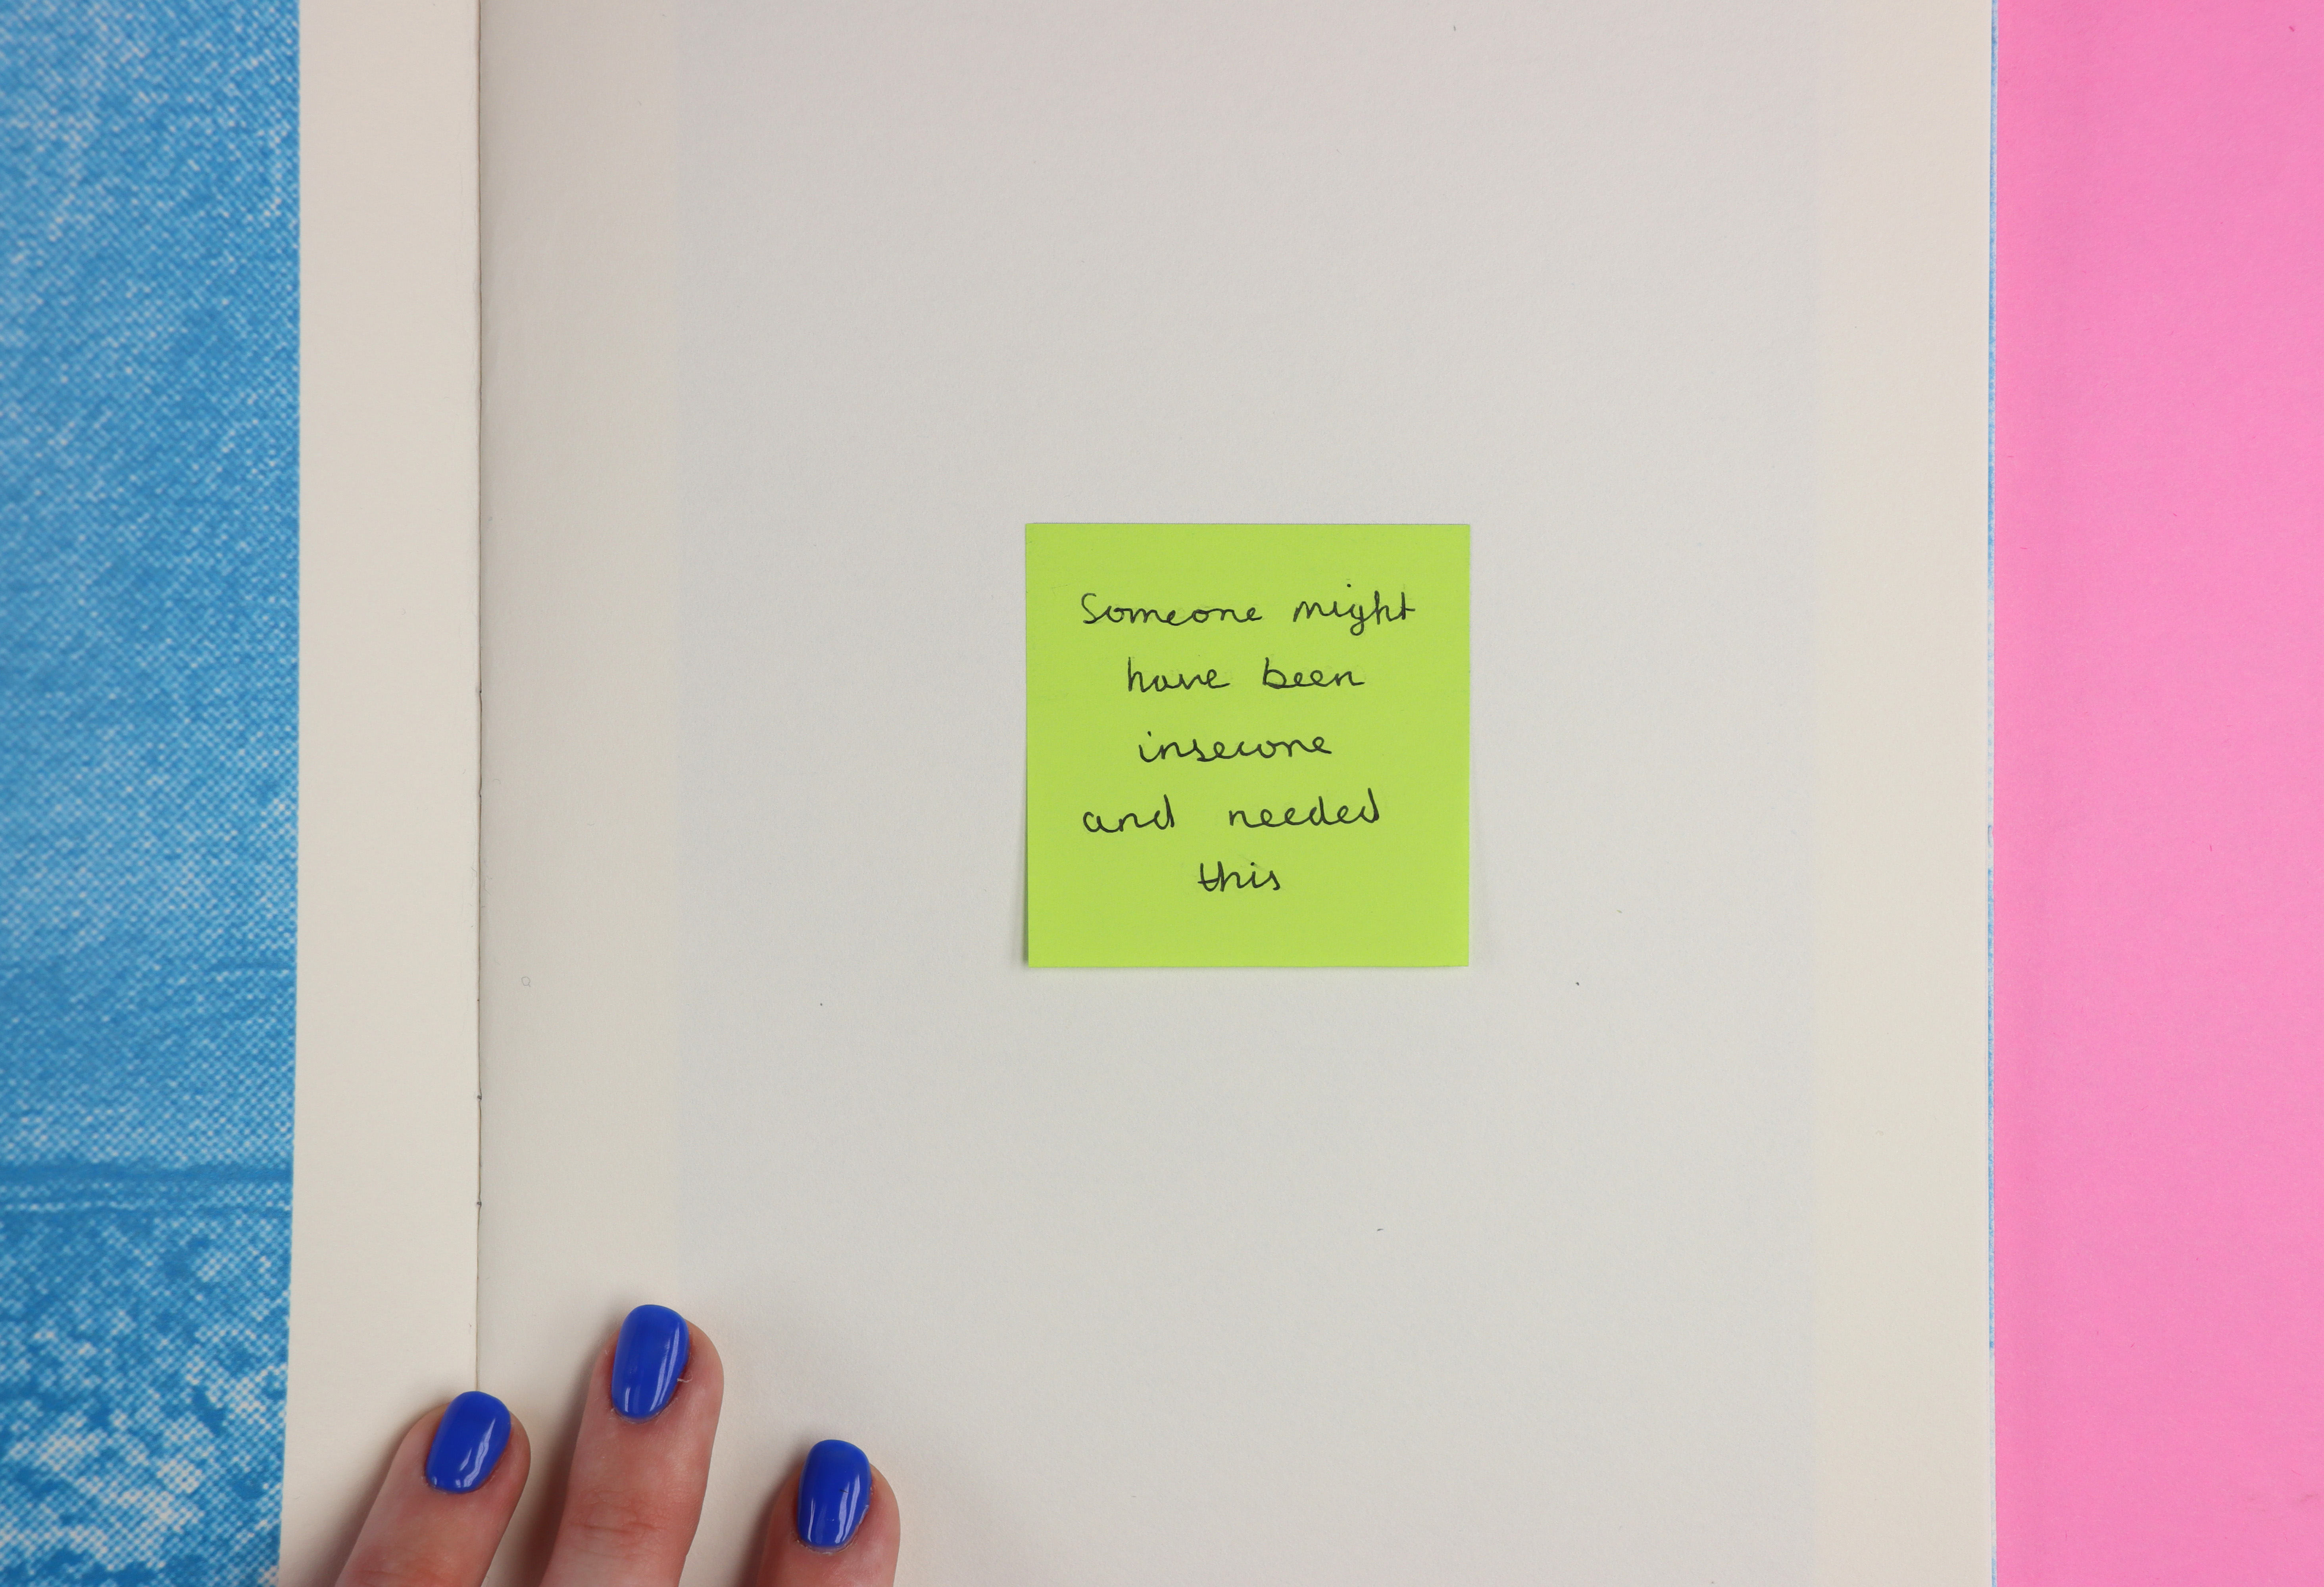 Someone might
have been
insecure
and needed
this